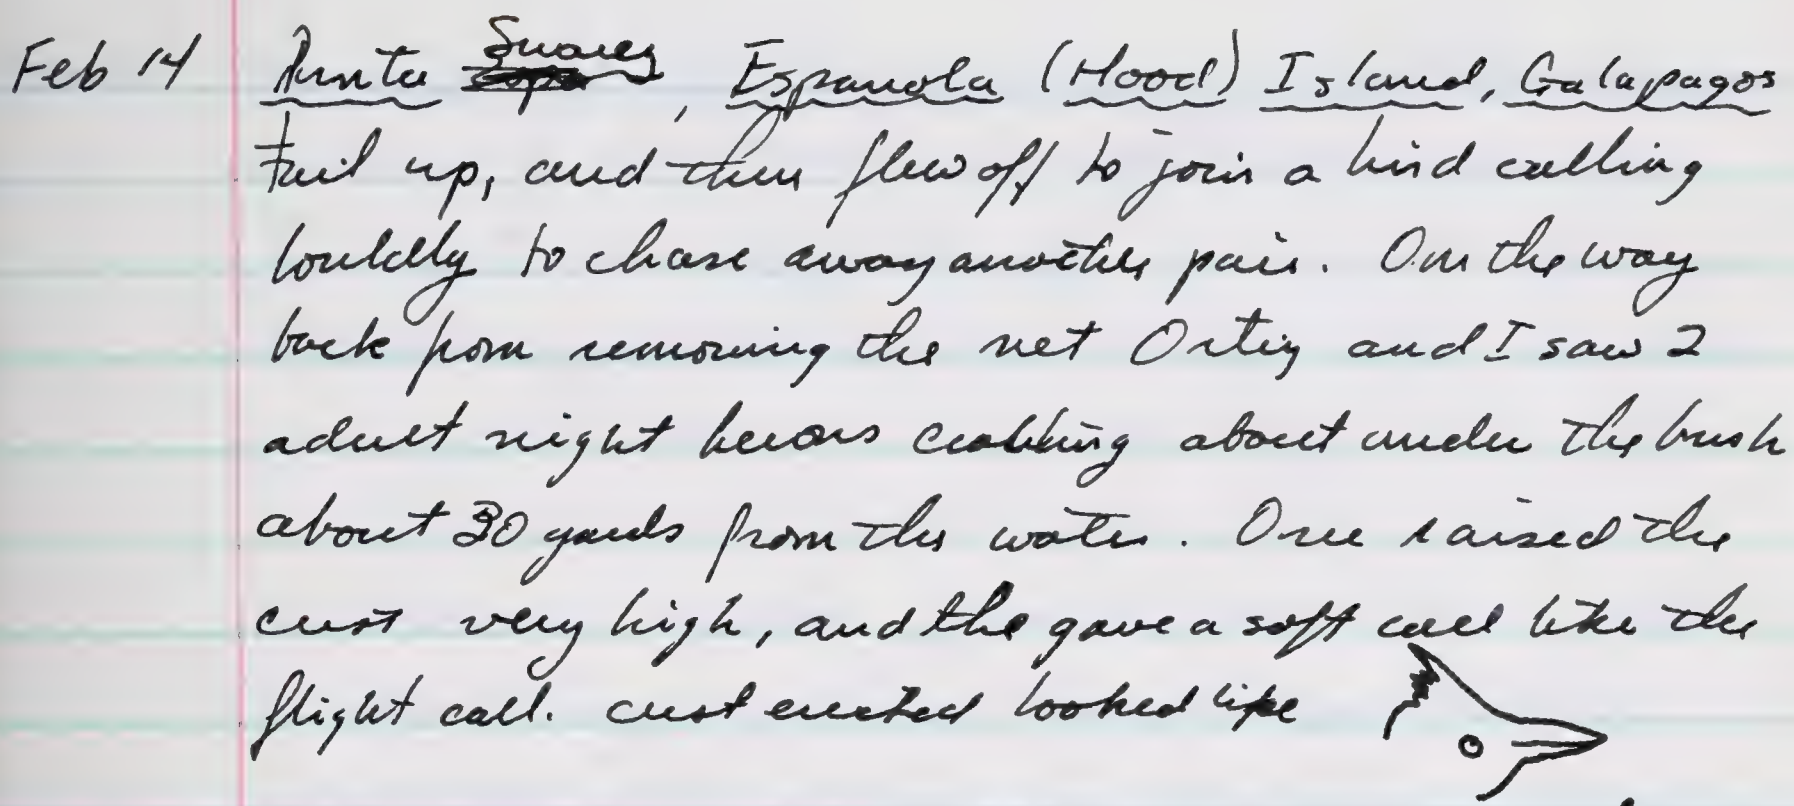 Feb 14 Punta Suarez, Espanola (Hood) Island, Galapagos
tail up, and then flew off to join a bird calling
loudly to chase away another pair. On the way
back from removing the net Ortiz and I saw 2
adult night herons crabbing about under the brush
about 30 yards from the water. One raised the
crest very high, and the gave a soft call like the
flight call. crest erected looked like